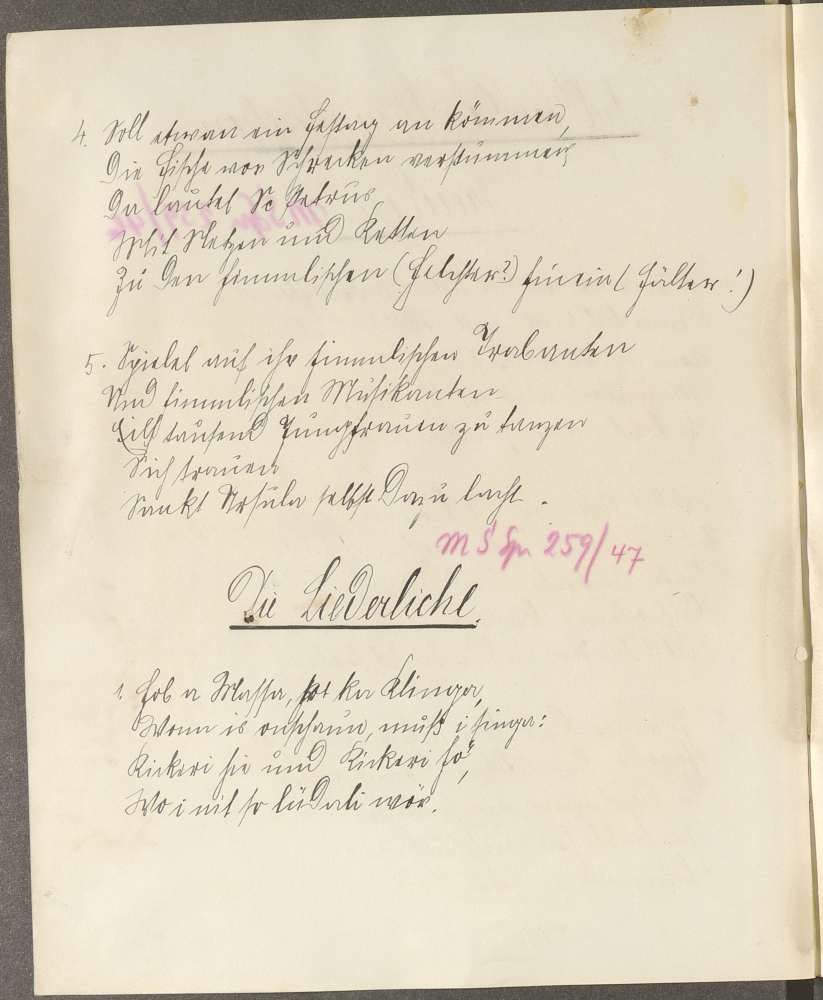 4. Soll etwan ein Festtag an kömmen,
Die Fische vor Schrecken verstummen,
Da lautet Sc. Petrus
Mit Netzen und Ketten
Zu den himmlischen (Helchter?) hinein (Hälter!)
5. Spielet auf ihr himmlischen Trabanten
Und himmlischen Musikanten
Eilf tausend Jungfrauen zu tanzen
Sich trauen
Sankt Ursula selbst dazu lacht.
MS Spr 259/47
Die Liederliche.
1. Hob a Massa, hot ka Klinga,
Wonn is onschaun, muß i singa:
Kickeri hie und Kickeri ho,
Wo i nit so lüdali wär.